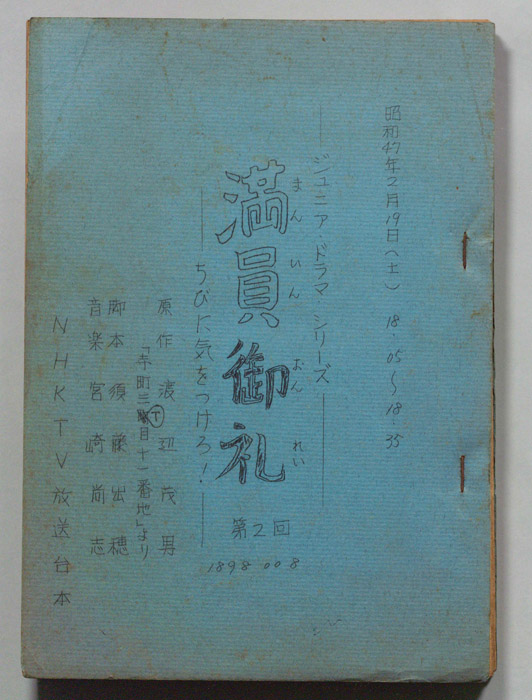 昭和47年2月19日(土) 18.05～18.35
ジュニア・ドラマ・シリーズ
満員御礼
まんいんおんれい
ちびに気をつけろ!
第2回
1898 00 8
原作 渡辺茂男
「寺町三丁目十一番地」より
脚本 須藤出穂
音楽 宮崎尚志
NHKTV放送台本